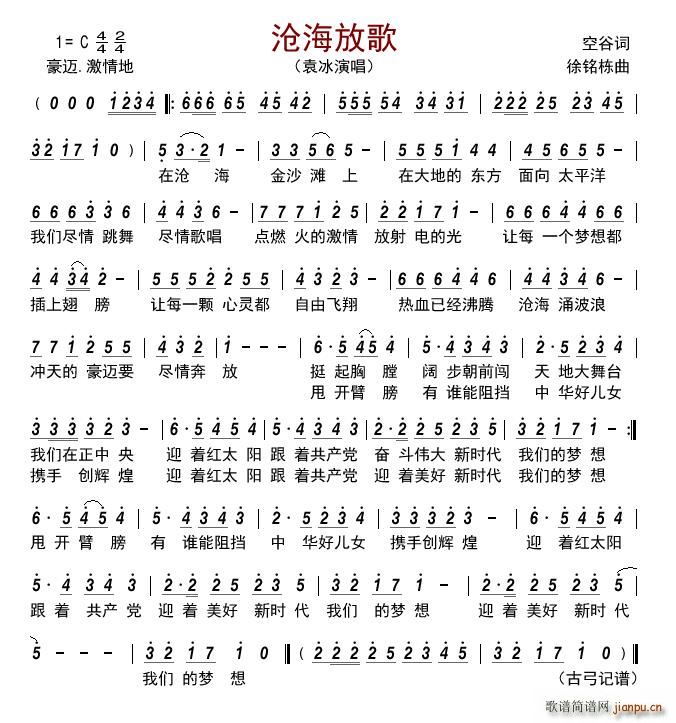 沧海放歌
1= C 4/4 2/4
空谷词
豪迈.激情地
(袁冰演唱)
徐铭栋曲
(0 0 0 1234 ‖: 666 65 45 42 | 555 54 34 31 | 222 25 23 45 |
32 17 1 0 ) | 5 3·2 – | 3 3 5 6 5 – | 5 5 5 1 4 4 | 4 5 6 5 5 – |
在沧 海 金沙 滩 上 在大地的 东方 面向 太平洋
6 6 6 3 3 6 | 3 4 3 6 – | 7 7 7 1 2 5 | 2 2 1 7 1 – | 6 6 6 4 4 6 6 |
我们尽情 跳舞 尽情歌唱 点燃 火的激情 放射 电的光 让每 一个梦想都
4 4 34 2 – | 5 5 5 2 5 2 2 | 3 4 3 2 3 – | 6 6 6 6 4 6 | 4 4 3 2 3 – |
插上翅 膀 让每一颗 心灵都 自由飞翔 热血已经沸腾 沧海 涌波浪
7 7 1 2 5 5 | 4 3 2 | 1 – – – | 6·5 45 4 | 5·4 3 4 3 | 2·5 4 3 2 |
冲天的 豪迈要 尽情奔 放 挺 起胸 膛 阔 步朝前闯 天 地大舞台
甩 开臂 膀 有 谁能阻挡 中 华好儿女
3 3 3 3 2 3 – | 6·5 4 5 4 | 5·4 3 4 3 | 2·2 2 5 2 3 5 | 3 2 1 7 1 – :‖
我们在正中 央 迎 着红太 阳 跟 着共产党 奋 斗伟大 新时代 我们的梦 想
携手 创辉 煌 迎 着红太 阳 跟 着共产党 迎 着美好 新时代 我们的梦 想
6·5 45 4 | 5·4 3 4 3 | 2·5 4 3 2 | 3 3 3 2 3 – | 6·5 4 5 4 |
甩 开 臂 膀 有 谁能阻挡 中 华好儿女 携手创辉 煌 迎 着红太阳
5·4 3 4 3 | 2·2 2 5 2 3 5 | 3 2 1 7 1 – | 2·2 2 5 2 3 5 |
跟 着 共产 党 迎 着 美好 新时 代 我们 的 梦 想 迎 着 美好 新时 代
5 – – | 3 2 1 7 1 0 ‖ ( 5555 54 34 31 | 2222 25 23 45 | 32 17 1 0 ) ‖
我们 的 梦 想 (古弓记谱)
歌谱简谱网
jianpu.cn